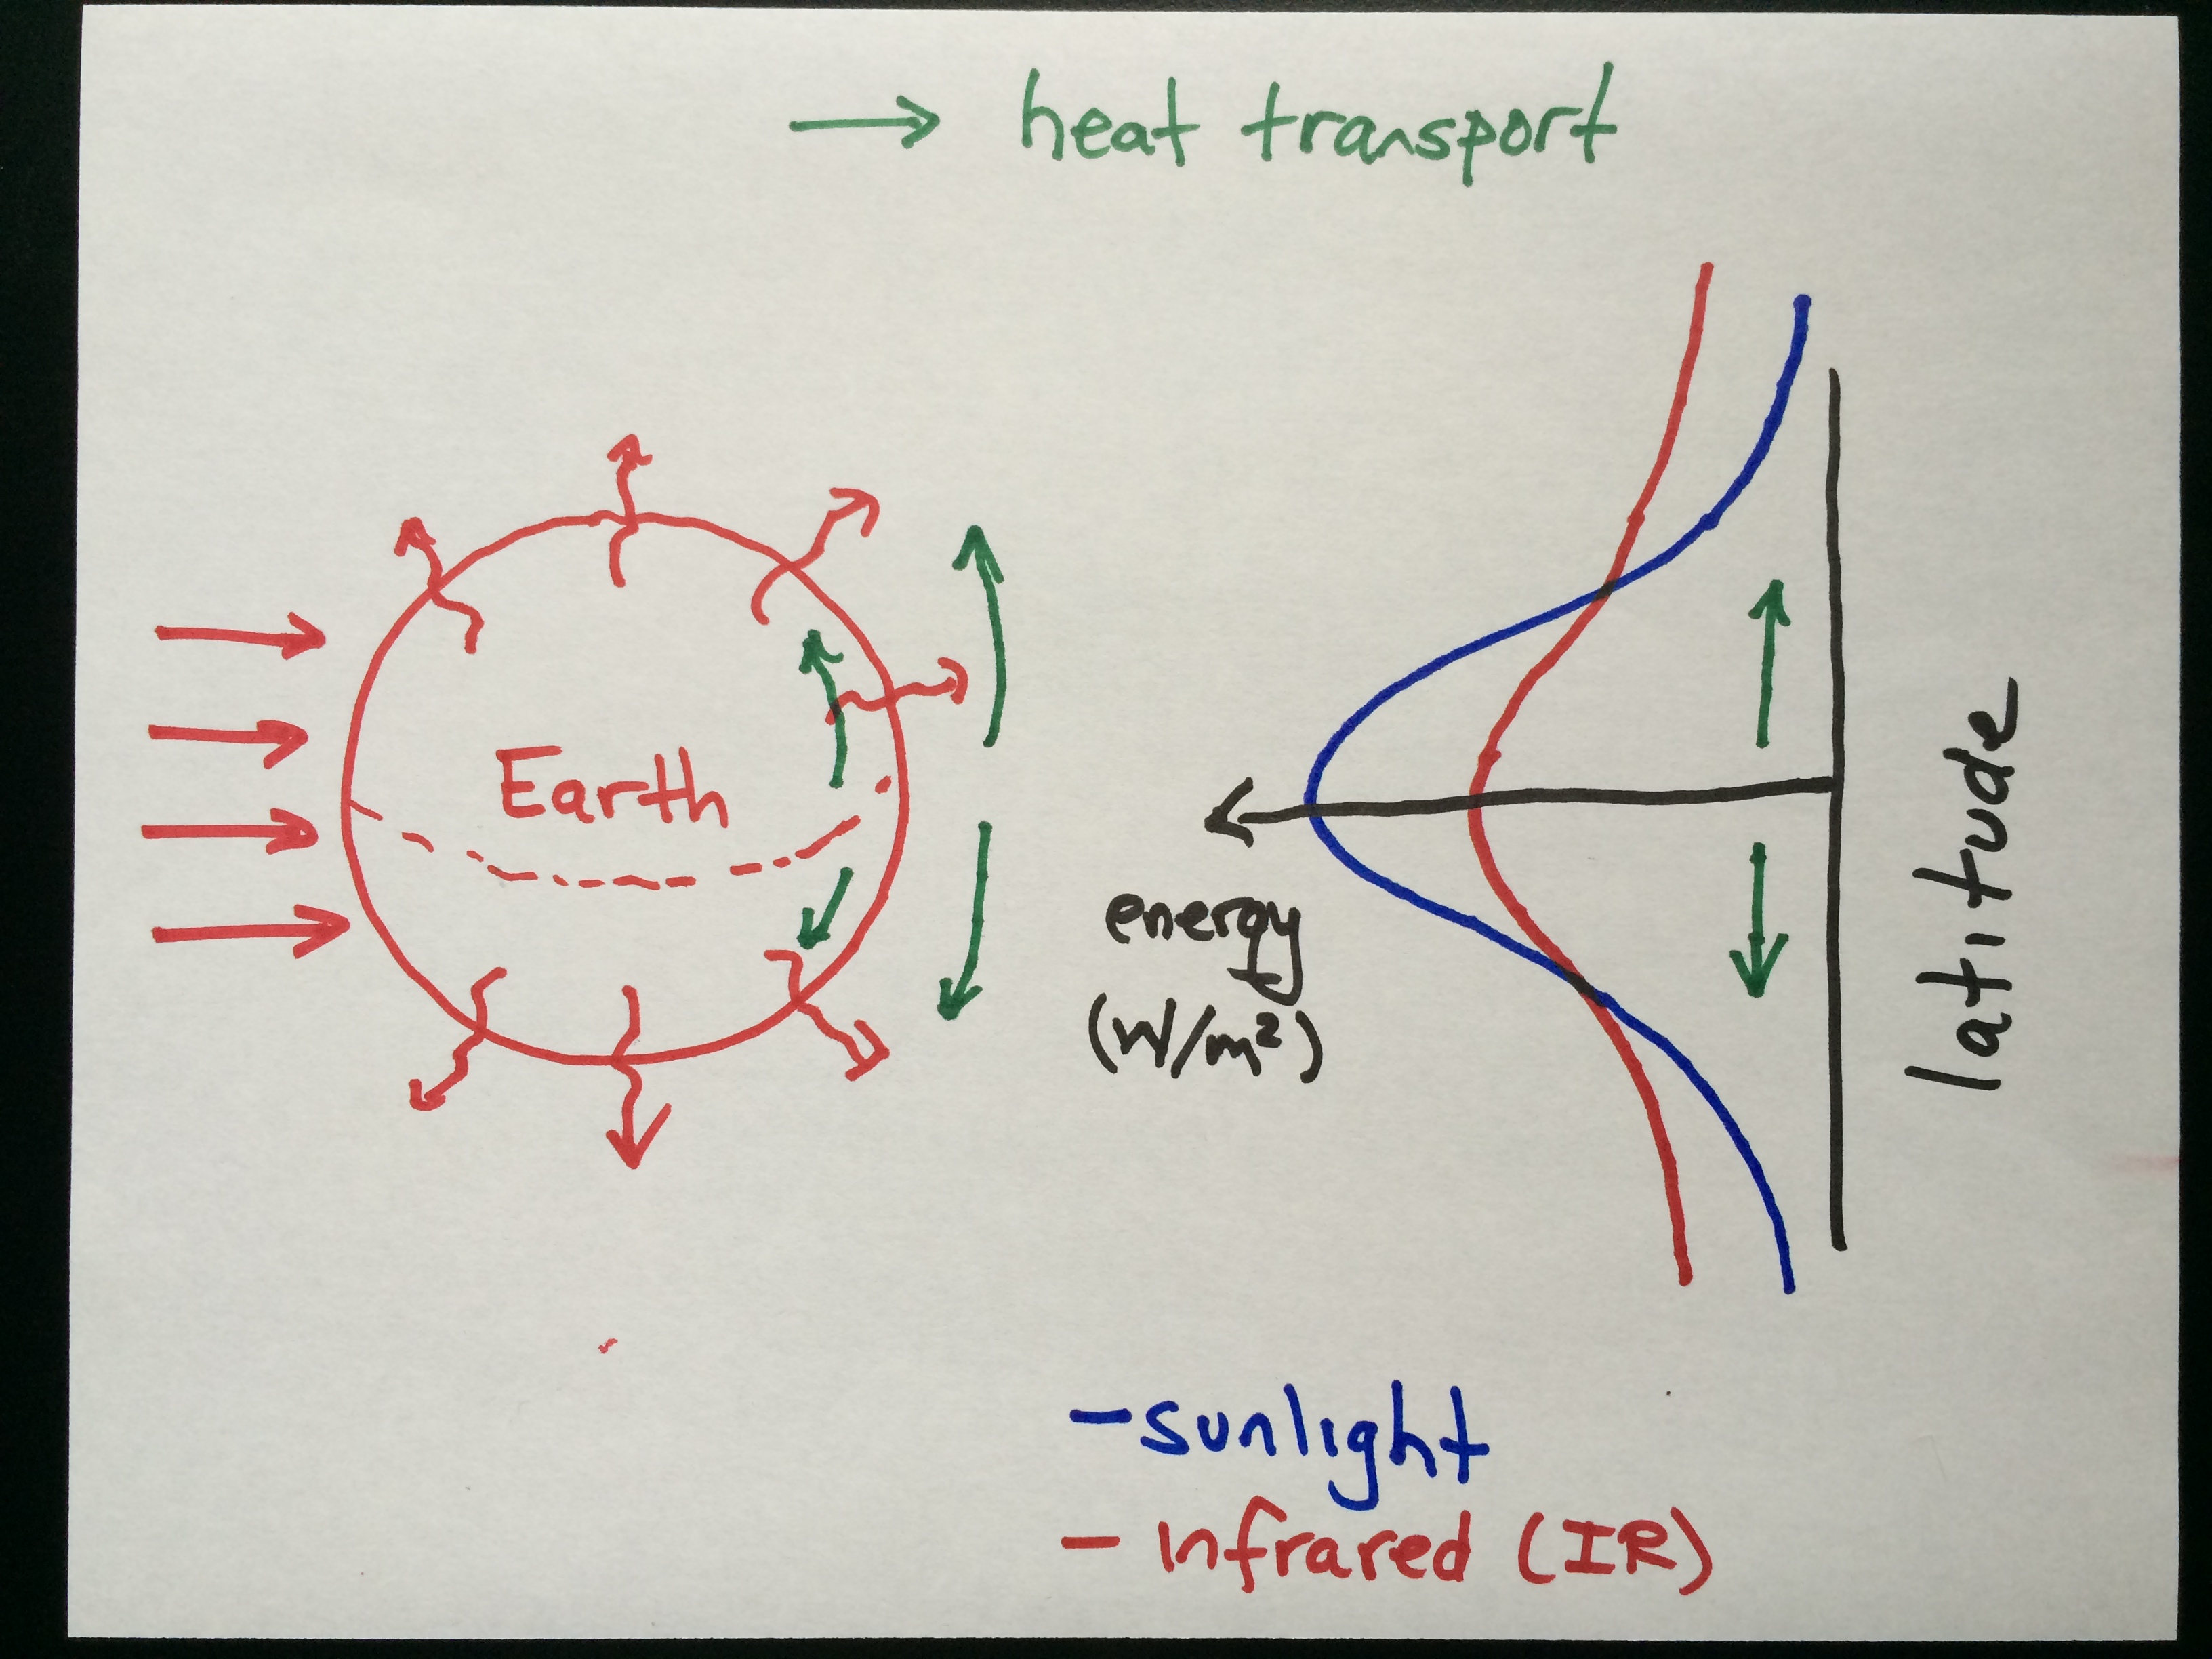 → heat transport
Earth
energy
(W/m²)
latitude
- sunlight
- Infrared (IR)